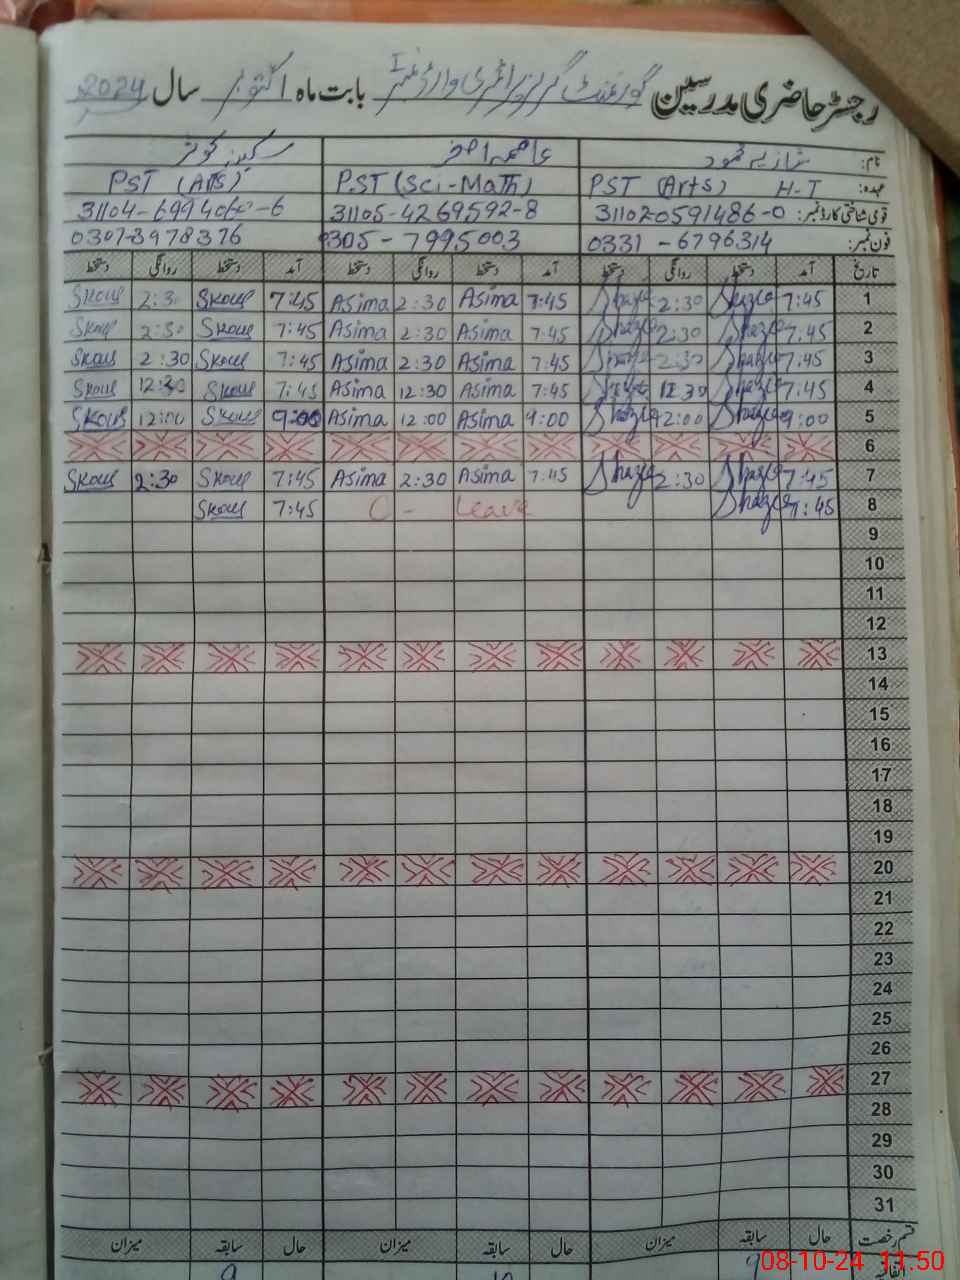 رجسٹر حاضری مدرسین گورنمنٹ گرلز پرائمری وارڈ نمبر I بابت ماہ اکتوبر سال 2024
نام: شازیہ محمود عاصمہ اصغر سکینہ کوثر
عہدہ: PST (Arts) H-T P.ST (Sci-Math) PST (Arts)
قومی شناختی کارڈ نمبر: 311020591486-0 31105-4269592-8
فون نمبر: 0331-6796314 0305-7995003 0307-3978376
تاریخ آمد دستخط روانگی دستخط آمد دستخط روانگی دستخط آمد دستخط روانگی دستخط
1 7:45 Shazia 2:30 Shazia 7:45 Asima 2:30 Asima 7:45 Skous 2:30 Skous
2 7:45 Shazia 2:30 Shazia 7:45 Asima 2:30 Asima 7:45 Skous 2:30 Skous
3 7:45 Shazia 2:30 Shazia 7:45 Asima 2:30 Asima 7:45 Skous 2:30 Skous
4 7:45 Shazia 12:30 Shazia 7:45 Asima 12:30 Asima 7:45 Skous 12:30 Skous
5 9:00 Shazia 12:00 Shazia 9:00 Asima 12:00 Asima 9:00 Skous 12:00 Skous
6
7 7:45 Shazia 2:30 Shazia 7:45 Asima 2:30 Asima 7:45 Skous 2:30 Skous
8 7:45 Shazia C - Leave 7:45 Skous
9
10
11
12
13
14
15
16
17
18
19
20
21
22
23
24
25
26
27
28
29
30
31
قسم رخصت حال سابقہ میزان حال سابقہ میزان حال سابقہ میزان
اتفاقیہ
08-10-24 11:50